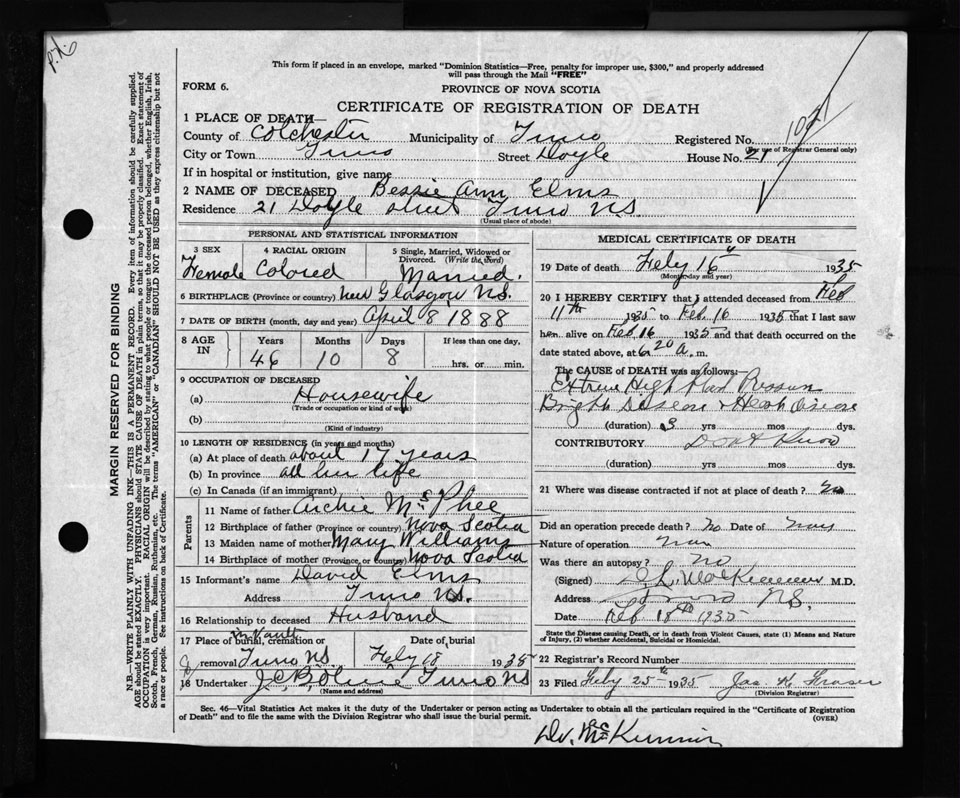 P.X.
This form if placed in an envelope, marked "Dominion Statistics—Free, penalty for improper use, $300," and properly addressed
will pass through the Mail "FREE"
FORM 6.
PROVINCE OF NOVA SCOTIA
CERTIFICATE OF REGISTRATION OF DEATH
1 PLACE OF DEATH—
County of Colchester Municipality of Truro Registered No.
(For use of Registrar General only)
City or Town Truro Street Doyle House No. 21
If in hospital or institution, give name
2 NAME OF DECEASED Bessie Ann Elms
Residence 21 Doyle street Truro N.S.
(Usual place of abode)
MARGIN RESERVED FOR BINDING
N.B.—WRITE PLAINLY WITH UNFADING INK—THIS IS A PERMANENT RECORD. Every item of information should be carefully supplied.
AGE should be stated EXACTLY. PHYSICIANS should STATE CAUSE OF DEATH in plain terms, so that it may be properly classified. Exact statement of
OCCUPATION is very important. RACIAL ORIGIN will be described by stating to what people or tongue the deceased person belonged, whether English, Irish,
Scotch, French, German, Russian, Ruthenian, etc. The terms "AMERICAN" or "CANADIAN" SHOULD NOT BE USED as they express citizenship but not
a race or people. See instructions on back of Certificate.
PERSONAL AND STATISTICAL INFORMATION
3 SEX 4 RACIAL ORIGIN 5 Single, Married, Widowed or
Divorced. (Write the word)
Female Colored Married.
6 BIRTHPLACE (Province or country) New Glasgow N.S.
7 DATE OF BIRTH (month, day and year) April 8 1888
8 AGE IN Years Months Days If less than one day,
46 10 8 hrs. or min.
9 OCCUPATION OF DECEASED
(a) Housewife
(Trade or occupation or kind of work)
(b)
(Kind of industry)
10 LENGTH OF RESIDENCE (in years and months)
(a) At place of death about 17 years
(b) In province all her life
(c) In Canada (if an immigrant)
Parents
11 Name of father Archie McPhee
12 Birthplace of father (Province or country) Nova Scotia
13 Maiden name of mother Mary Williams
14 Birthplace of mother (Province, or country) Nova Scotia
15 Informant's name David Elms
Address Truro N.S.
16 Relationship to deceased Husband
17 Place of burial, cremation or Date of burial
in Vault
removal Truro N.S. Feby 18 1935
18 Undertaker Truro N.S.
(Name and address)
MEDICAL CERTIFICATE OF DEATH
19 Date of death Feby 16 1935
(Month, day and year)
20 I HEREBY CERTIFY that I attended deceased from Feb
11th 1935 to Feb. 16 1935 that I last saw
her alive on Feb. 16 1935 and that death occurred on the
date stated above, at 6.20 a. m.
The CAUSE of DEATH was as follows:
Extreme High Blood Pressure
Brights Disease + Heart Disease
(duration) 3 yrs mos dys.
CONTRIBUTORY Dont Know
(duration) yrs mos dys.
21 Where was disease contracted if not at place of death?
Did an operation precede death? No Date of
Nature of operation
Was there an autopsy? No
(Signed) M.D.
Address Truro N.S.
Date Feb 18th 1935
State the Disease causing Death, or in death from Violent Causes, state (1) Means and Nature
of Injury, (2) whether Accidental, Suicidal or Homicidal.
22 Registrar's Record Number
23 Filed Feby 25th 1935 Jas. K. Fraser
(Division Registrar)
Sec. 46—Vital Statistics Act makes it the duty of the Undertaker or person acting as Undertaker to obtain all the particulars required in the "Certificate of Registration
of Death" and to file the same with the Division Registrar who shall issue the burial permit. (OVER)